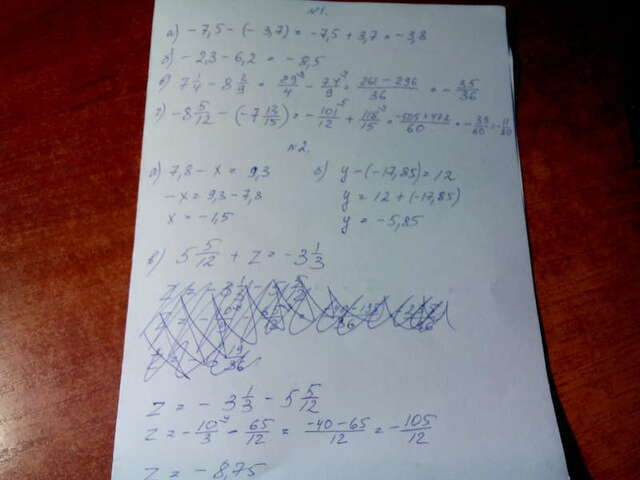 №1.
а) -7,5 - (-3,7) = -7,5 + 3,7 = -3,8
б) -2,3 - 6,2 = -8,5
в) 7 1/4 - 8 2/9 = 29/4 - 74/9 = 261 - 296/36 = - 35/36
г) -8 5/12 - (-7 13/15) = - 101/12 + 118/15 = -505 + 472/60 = - 33/60 = - 11/20
№2.
а) 7,8 - x = 9,3
-x = 9,3 - 7,8
x = -1,5
б) y - (-17,85) = 12
y = 12 + (-17,85)
y = -5,85
в) 5 5/12 + z = -3 1/3
z = - 3 1/3 - 5 5/12
z = - 10/3 - 65/12 = -40 - 65/12 = - 105/12
z = - 8,75